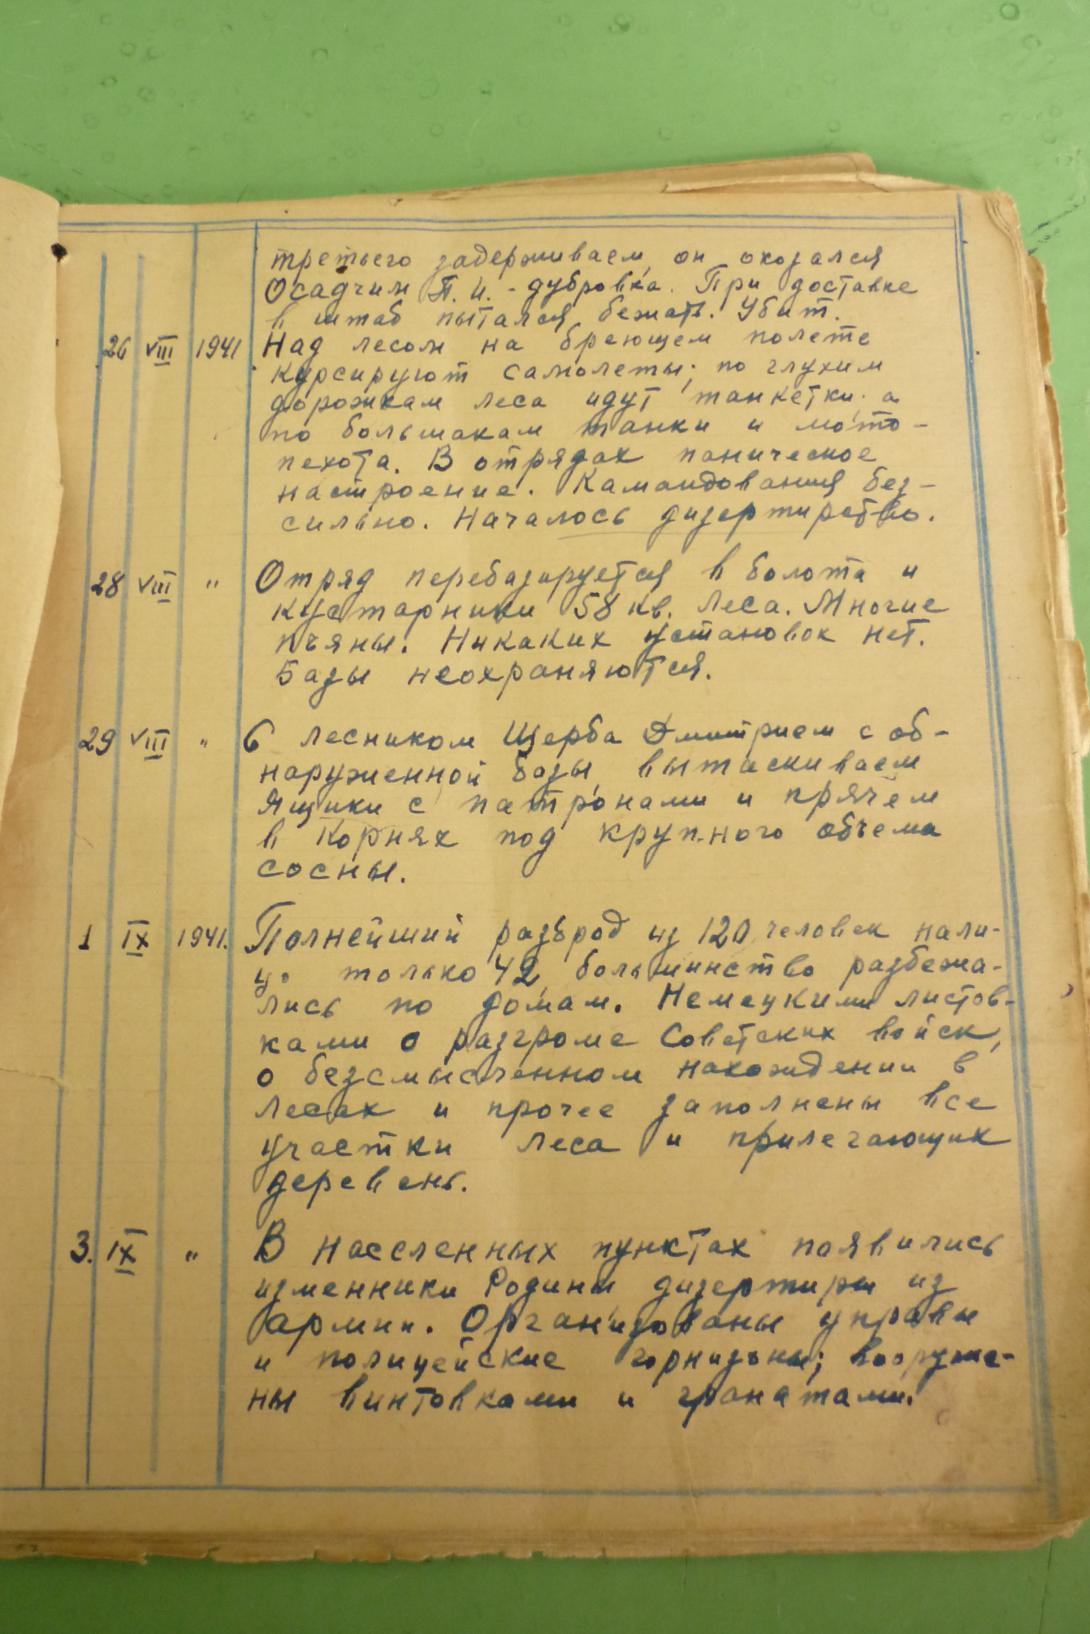 третьего задерживаем, он оказался
Осадчим П. И. - дубровка. При доставке
в штаб пытался бежать. Убит.
26 VIII 1941 Над лесом на бреющем полете
курсируют самолеты; по глухим
дорожкам леса идут танкетки, а
по большакам танки и мото-
пехота. В отрядах паническое
настроение. Камандования без-
сильно. Началось дизертирство.
28 VIII " Отряд перебазируется в болота и
кустарники 58 кв. леса. Многие
пъяны. Никаких установок нет.
Базы неохраняются.
29 VIII " С лесником Щерба Дмитрием с об-
наруженной базы, вытаскиваем
ящики с патронами и прячем
в корнях под крупного объема
сосны.
1 IX 1941. Полнейший разброд из 120 человек нали-
цо только 42, большинство разбежа-
лись по домам. Немецкими листов-
ками о разгроме Советских войск,
о безсмысленном нахождении в
лесах и прочее заполнены все
участки леса и прилегающих
деревень.
3. IX " В населенных пунктах появились
изменники Родины дизертиры из
армии. Организованы управы
и полицейские горнизоны; вооруже-
ны винтовками и гранатами.